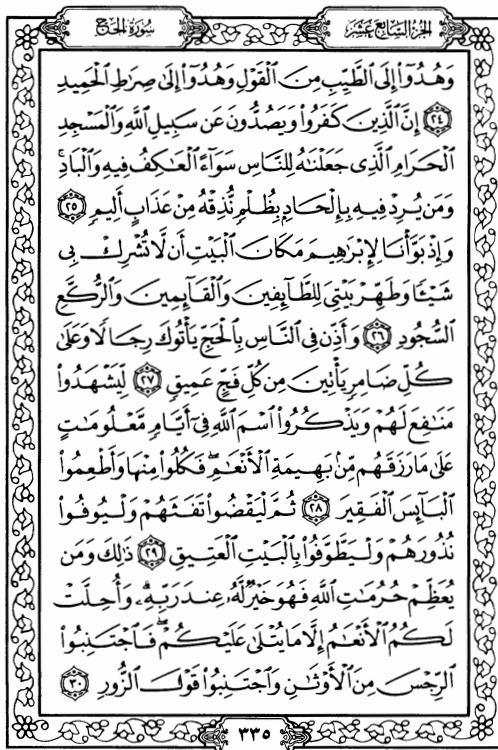 الجزء السابع عشر
سورة الحج
وَهُدُوٓا۟ إِلَى ٱلطَّيِّبِ مِنَ ٱلْقَوْلِ وَهُدُوٓا۟ إِلَىٰ صِرَٰطِ ٱلْحَمِيدِ
﴿٢٤﴾ إِنَّ ٱلَّذِينَ كَفَرُوا۟ وَيَصُدُّونَ عَن سَبِيلِ ٱللَّهِ وَٱلْمَسْجِدِ
ٱلْحَرَامِ ٱلَّذِى جَعَلْنَٰهُ لِلنَّاسِ سَوَآءً ٱلْعَٰكِفُ فِيهِ وَٱلْبَادِ ۚ
وَمَن يُرِدْ فِيهِ بِإِلْحَادٍۭ بِظُلْمٍ نُّذِقْهُ مِنْ عَذَابٍ أَلِيمٍ ﴿٢٥﴾
وَإِذْ بَوَّأْنَا لِإِبْرَٰهِيمَ مَكَانَ ٱلْبَيْتِ أَن لَّا تُشْرِكْ بِى
شَيْـًٔا وَطَهِّرْ بَيْتِىَ لِلطَّآئِفِينَ وَٱلْقَآئِمِينَ وَٱلرُّكَّعِ
ٱلسُّجُودِ ﴿٢٦﴾ وَأَذِّن فِى ٱلنَّاسِ بِٱلْحَجِّ يَأْتُوكَ رِجَالًا وَعَلَىٰ
كُلِّ ضَامِرٍ يَأْتِينَ مِن كُلِّ فَجٍّ عَمِيقٍ ﴿٢٧﴾ لِّيَشْهَدُوا۟
مَنَٰفِعَ لَهُمْ وَيَذْكُرُوا۟ ٱسْمَ ٱللَّهِ فِىٓ أَيَّامٍ مَّعْلُومَٰتٍ
عَلَىٰ مَا رَزَقَهُم مِّنۢ بَهِيمَةِ ٱلْأَنْعَٰمِ ۖ فَكُلُوا۟ مِنْهَا وَأَطْعِمُوا۟
ٱلْبَآئِسَ ٱلْفَقِيرَ ﴿٢٨﴾ ثُمَّ لْيَقْضُوا۟ تَفَثَهُمْ وَلْيُوفُوا۟
نُذُورَهُمْ وَلْيَطَّوَّفُوا۟ بِٱلْبَيْتِ ٱلْعَتِيقِ ﴿٢٩﴾ ذَٰلِكَ وَمَن
يُعَظِّمْ حُرُمَٰتِ ٱللَّهِ فَهُوَ خَيْرٌ لَّهُۥ عِندَ رَبِّهِۦ ۗ وَأُحِلَّتْ
لَكُمُ ٱلْأَنْعَٰمُ إِلَّا مَا يُتْلَىٰ عَلَيْكُمْ ۖ فَٱجْتَنِبُوا۟
ٱلرِّجْسَ مِنَ ٱلْأَوْثَٰنِ وَٱجْتَنِبُوا۟ قَوْلَ ٱلزُّورِ ﴿٣٠﴾
٣٣٥